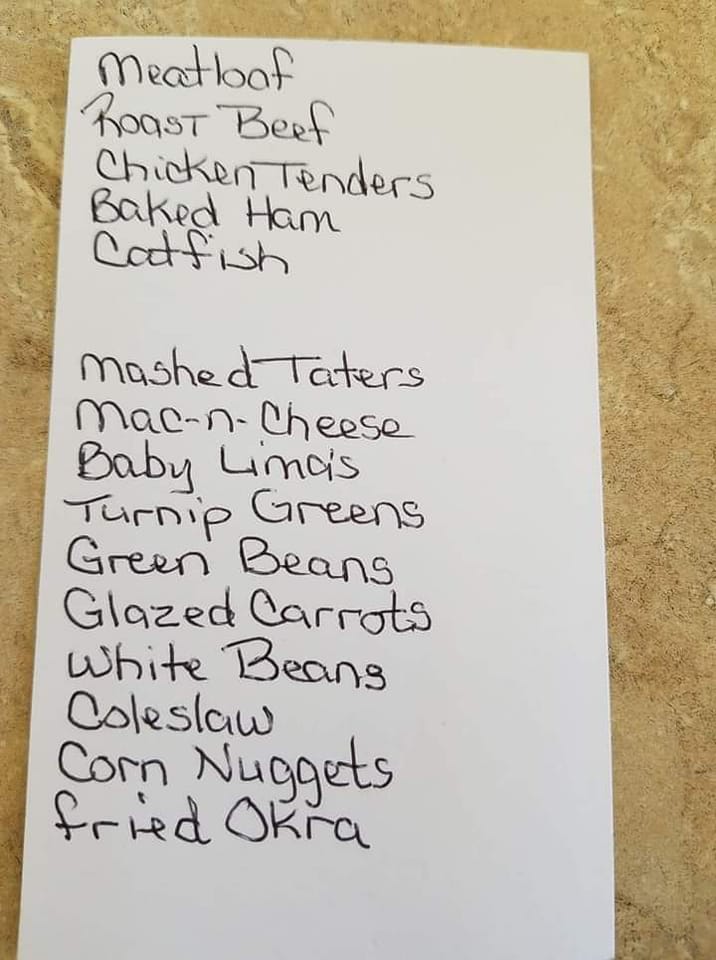 Meatloaf
Roast Beef
Chicken Tenders
Baked Ham
Catfish
Mashed Taters
Mac-n-Cheese
Baby Lima's
Turnip Greens
Green Beans
Glazed Carrots
White Beans
Coleslaw
Corn Nuggets
Fried Okra